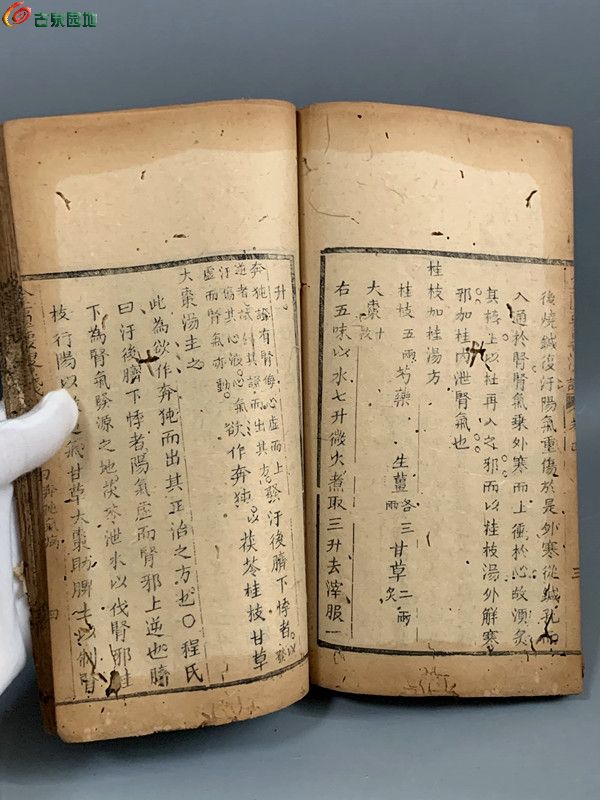 古泉园地
後燒鍼復汗陽氣重傷於是外寒從鍼孔而
入通於腎腎氣乗外寒而上衝於心故須灸
其核上以杜再入之邪而以桂枝湯外解寒
邪加桂内泄腎氣也
桂枝加桂湯方
桂枝五兩芍藥 生薑各三兩甘草二兩炙
大棗十枚
右五味以水七升微火煮取三升去滓服一
升
奔㹠證有腎侮心虚而上
逆者
汗傷其心液心氣
虚而腎氣亦動
發汗後臍下悸者
欲作奔㹠茯苓桂枝甘草
大棗湯主之
此為欲作奔㹠而出其正治之方也○程氏
曰汗後臍下悸者陽氣虚而腎邪上逆也臍
下為腎氣發源之地茯苓泄水以伐腎邪桂
枝行陽以甘草大棗助脾土以制腎